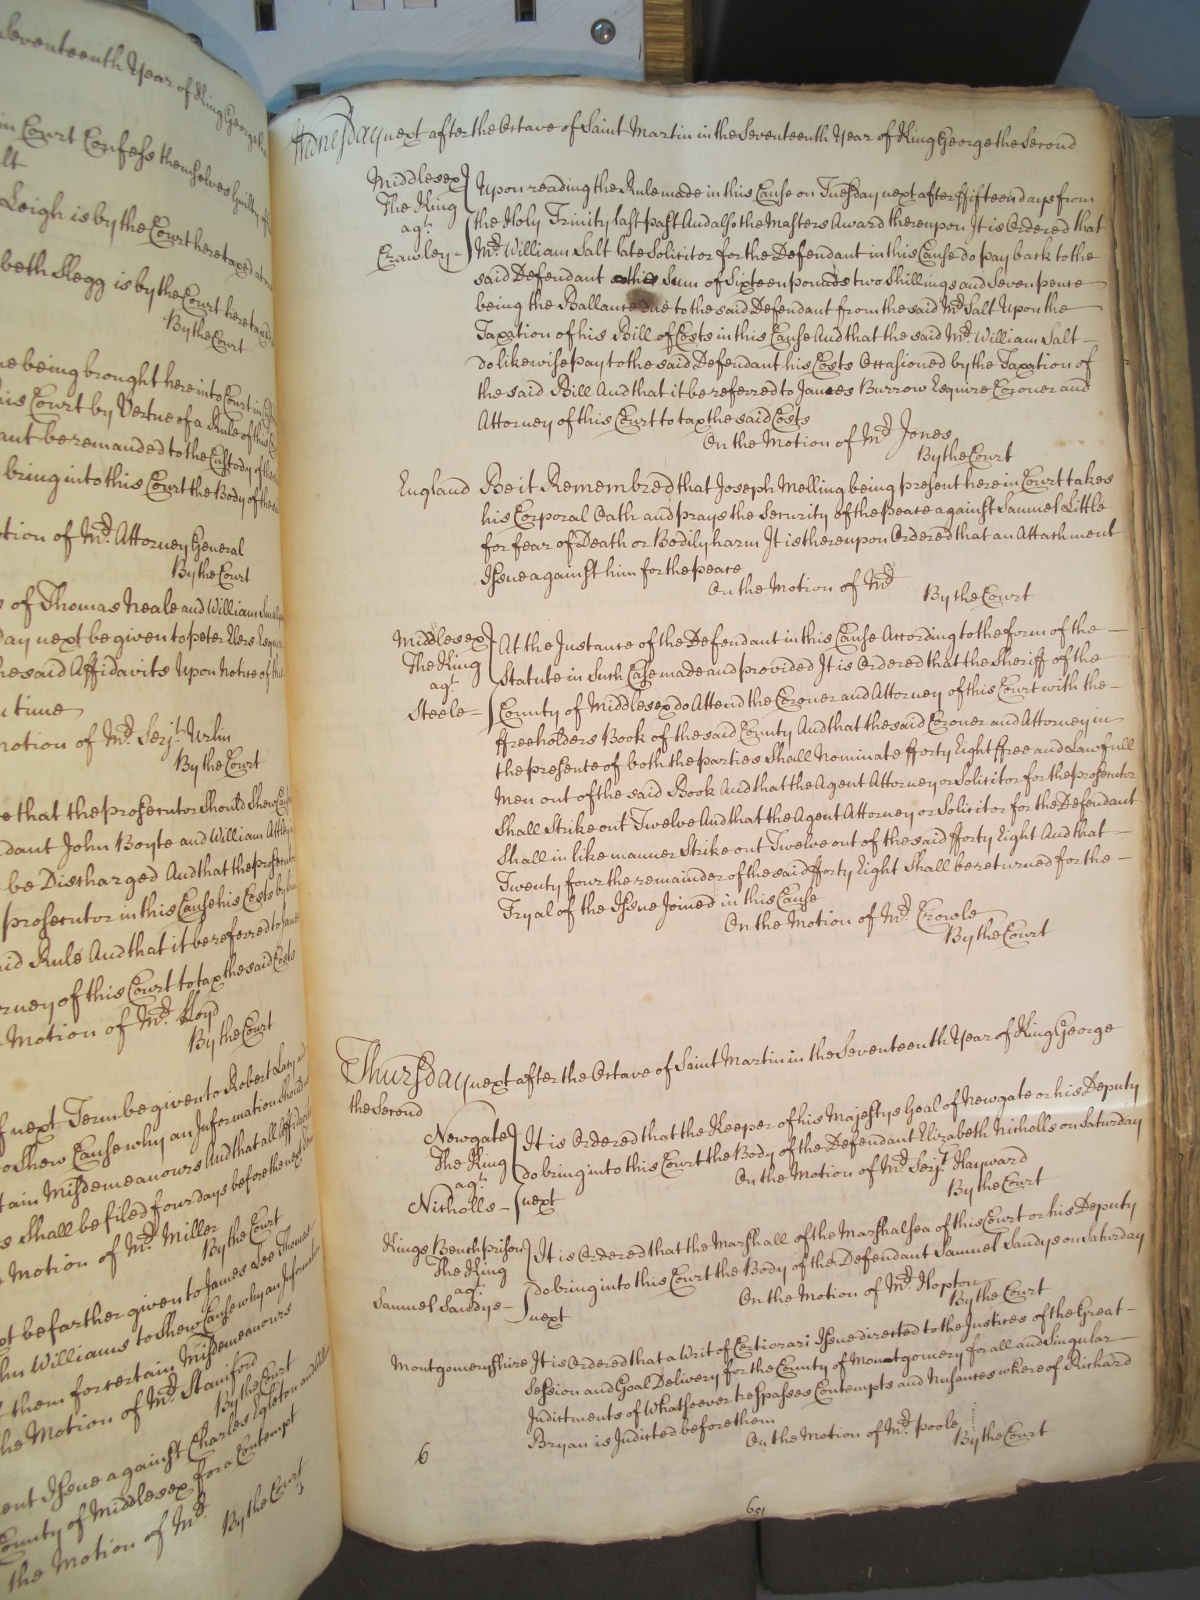 Seventeenth Year of King George
in Court Confess themselves Guilty
Leigh is by the Court here taxed
beth Slegg is by the Court here
By the Court
being brought here into Court in
his Court by Vertue of a Rule of this
ant be remanded to the Custody of the
bring into this Court the Body of the
otion of Mr. Attorney General
By the Court
of Thomas Neale and William
day next be given to peter Elers
he said Affidavits Upon notice of
time
otion of Mr. Serjt. Urlin
By the Court
e that the prosecutor Should Shew
dant John Boyte and William
be Discharged And that the
prosecutor in this Cause his Costs
aid Rule And that it be referred to
orney of this Court to tax the said Costs
Motion of Mr. Lloyd
By the Court
of next Term be given to Robert
to Shew Cause why an Information Should
tain Misdemeanours And that all
s Shall be filed four days before the
Motion of Mr. Miller
By the Court
be farther given to James Lee Thomas
hn Williams to Shew Cause why an
them for certain Misdemeanours
he Motion of Mr. Stamford
By the Court
ent Issue against Charles
County of Middlesex for a Contempt
the Motion of Mr.
By the Court
Wednesday next after the Octave of Saint Martin in the Seventeenth Year of King George the Second
Middlesex Upon reading the Rule made in this Cause on Tuesday next after ffifteen days from
The King the Holy Trinity last past And also the Masters Award thereupon It is Ordered that
agt. Mr. William Salt late Solicitor for the Defendant in this Cause do pay back to the
Crawley said Defendant the Sum of Sixteen pounds two Shillings and Seven pence
being the Ballance due to the said Defendant from the said Mr. Salt Upon the
Taxation of his Bill of Costs in this Cause And that the said Mr. William Salt
do likewise pay to the said Defendant his Costs Occasioned by the Taxation of
the said Bill And that it be referred to James Burrow Esquire Coroner and
Attorney of this Court to tax the said Costs
On the Motion of Mr. Jones
By the Court
England Be it Remembred that Joseph Melling being present here in Court takes
his Corporal Oath and prays the Security of the peace against Samuel Little
for fear of Death or Bodily harm It is thereupon Ordered that an Attachment
Issue against him for the peace
On the Motion of Mr.
By the Court
Middlesex At the Instance of the Defendant in this Cause According to the form of the
The King Statute in Such Case made and provided It is Ordered that the Sheriff of the
agt. County of Middlesex do Attend the Coroner and Attorney of this Court with the
Steele ffreeholders Book of the said County And that the said Coroner and Attorney in
the presence of both the parties Shall Nominate fforty Eight ffree and Lawfull
Men out of the said Book And that the Agent Attorney or Solicitor for the prosecutor
Shall Strike out Twelve And that the Agent Attorney or Solicitor for the Defendant
Shall in like manner Strike out Twelve out of the said fforty Eight And that
Twenty four the remainder of the said fforty Eight Shall be returned for the
Tryal of the Issue Joined in this Cause
On the Motion of Mr. Crowle
By the Court
Thursday next after the Octave of Saint Martin in the Seventeenth Year of King George
the Second
Newgate It is Ordered that the Keeper of his Majestys Goal of Newgate or his Deputy
The King do bring into this Court the Body of the Defendant Elizabeth Nicholls on Saturday
agt. On the Motion of Mr. Serjt. Hayward
Nicholls next By the Court
Kings Bench prison It is Ordered that the Marshall of the Marshalsea of this Court or his Deputy
The King do bring into this Court the Body of the Defendant Samuel Sandys on Saturday
agt. On the Motion of Mr. Hopton
Samuel Sandys next By the Court
Montgomeryshire It is Ordered that a Writ of Certiorari Issue directed to the Justices of the Great
Session and Goal Delivery for the County of Montgomery for all and Singular
Indictments of Whatsoever trespasses Contempts and Nusances whereof Richard
Bryan is Indicted before them
On the Motion of Mr. poole
By the Court
6
651